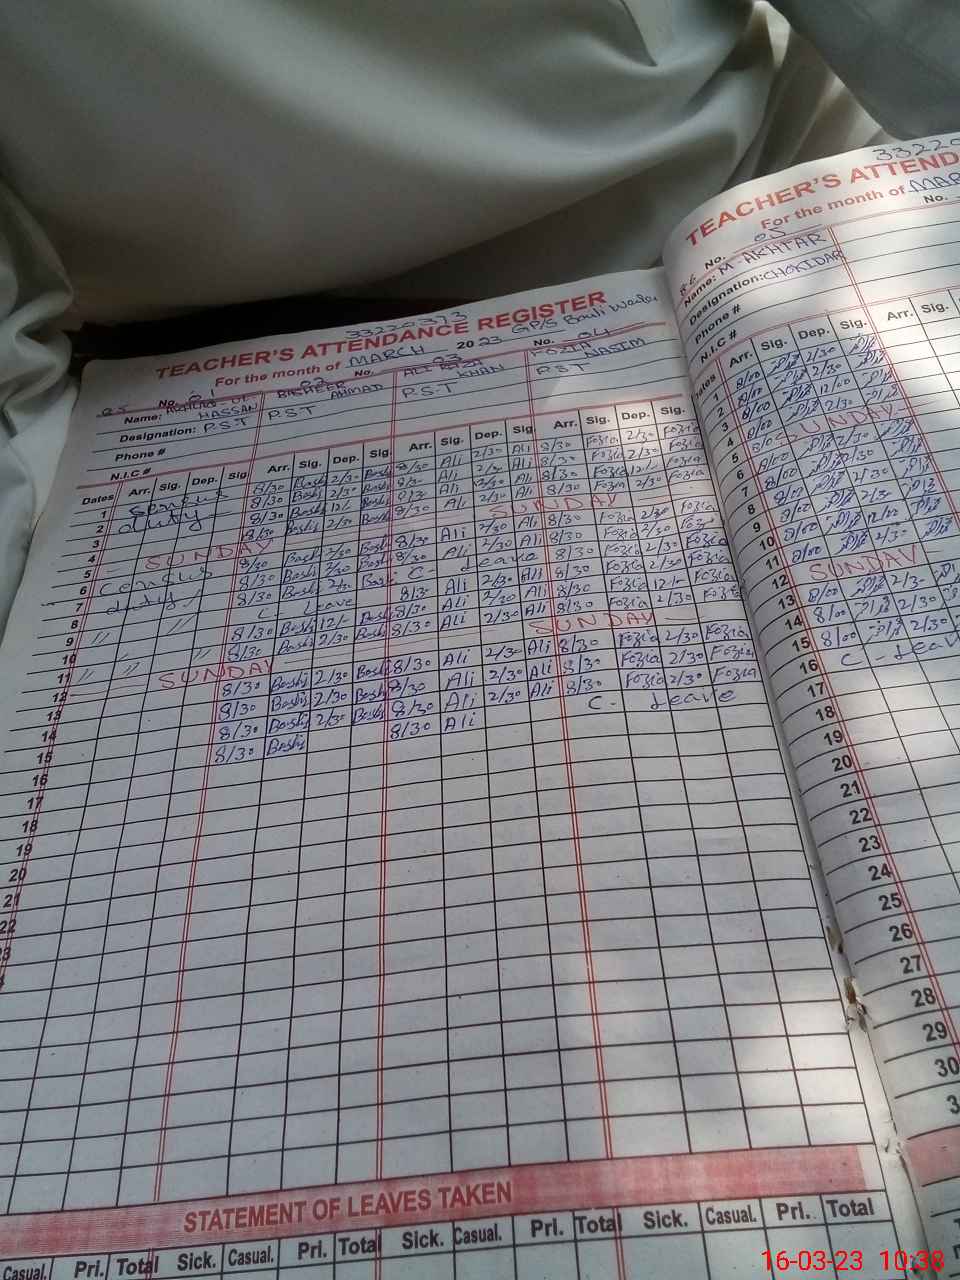 33220373
TEACHER'S ATTENDANCE REGISTER
GP/S Bauli
For the month of MARCH 2023
No. 01 No. 02 No. 23 No. 04
Name: HASSAN BASHEER AHMAD ALI RAZA KHAN FOZIA NASIM
Designation: P.S.T P.S.T P.S.T P.S.T
Phone #
N.I.C #
Dates Arr. Sig. Dep. Sig Arr. Sig. Dep. Sig. Arr. Sig. Dep. Sig Arr. Sig. Dep. Sig.
1 Census 8/30 Bashj 2/30 Bashj 8/30 Ali 2/30 Ali 8/30 Fozia 2/30 Fozia
2 duty 8/30 Bashj 12/- Bashj 8/30 Ali 2/30 Ali 8/30 Fozia 12/- Fozia
3 8/30 Bashj 2/30 Bashj 8/30 Ali 2/30 Ali 8/30 Fozia 2/30 Fozia
4
5 SUNDAY SUNDAY
6 Census 8/30 Bashj 2/30 Bashj 8/30 Ali 2/30 Ali 8/30 Fozia 2/30 Fozia
7 duty 8/30 Bashj 2/30 Bashj 8/30 Ali 2/30 Ali 8/30 Fozia 2/30 Fozia
8 8/30 Bashj 2/30 Bashj C - Leave 8/30 Fozia 2/30 Fozia
9 " " C - Leave 8/30 Ali 2/30 Ali 8/30 Fozia 12/- Fozia
10 8/30 Bashj 12/- Bashj 8/30 Ali 2/30 Ali 8/30 Fozia 2/30 Fozia
11 " " " 8/30 Bashj 2/30 Bashj 8/30 Ali 2/30 Ali
12 SUNDAY SUNDAY
13 8/30 Bashj 2/30 Bashj 8/30 Ali 2/30 Ali 8/30 Fozia 2/30 Fozia
14 8/30 Bashj 2/30 Bashj 8/30 Ali 2/30 Ali 8/30 Fozia 2/30 Fozia
15 8/30 Bashj 2/30 Bashj 8/30 Ali 2/30 Ali 8/30 Fozia 2/30 Fozia
16 8/30 Bashj 8/30 Ali C - Leave
17
18
19
20
21
22
23
STATEMENT OF LEAVES TAKEN
Casual. Pri. Total Sick. Casual. Pri. Total Sick. Casual. Pri. Total Sick. Casual. Pri. Total
33220
TEACHER'S ATTENDANC
For the month of MAR
No. 05 No.
Name: M AKHTAR
Designation: CHOKIDAR
Phone #
N.I.C #
Dates Arr. Sig. Dep. Sig. Arr. Sig.
1 8/00 2/30
2 8/00 12/00
3 8/00 2/30
4 8/00
5 SUNDAY
6 8/00 2/30
7 8/00 2/30
8 8/00 2/30
9 8/00 2/30
10 8/00 12/00
11 8/00
12 SUNDAY
13 8/00 2/30
14 8/00 2/30
15 8/00 2/30
16 C - Leav
17
18
19
20
21
22
23
24
25
26
27
28
29
30
3
16-03-23 10:38